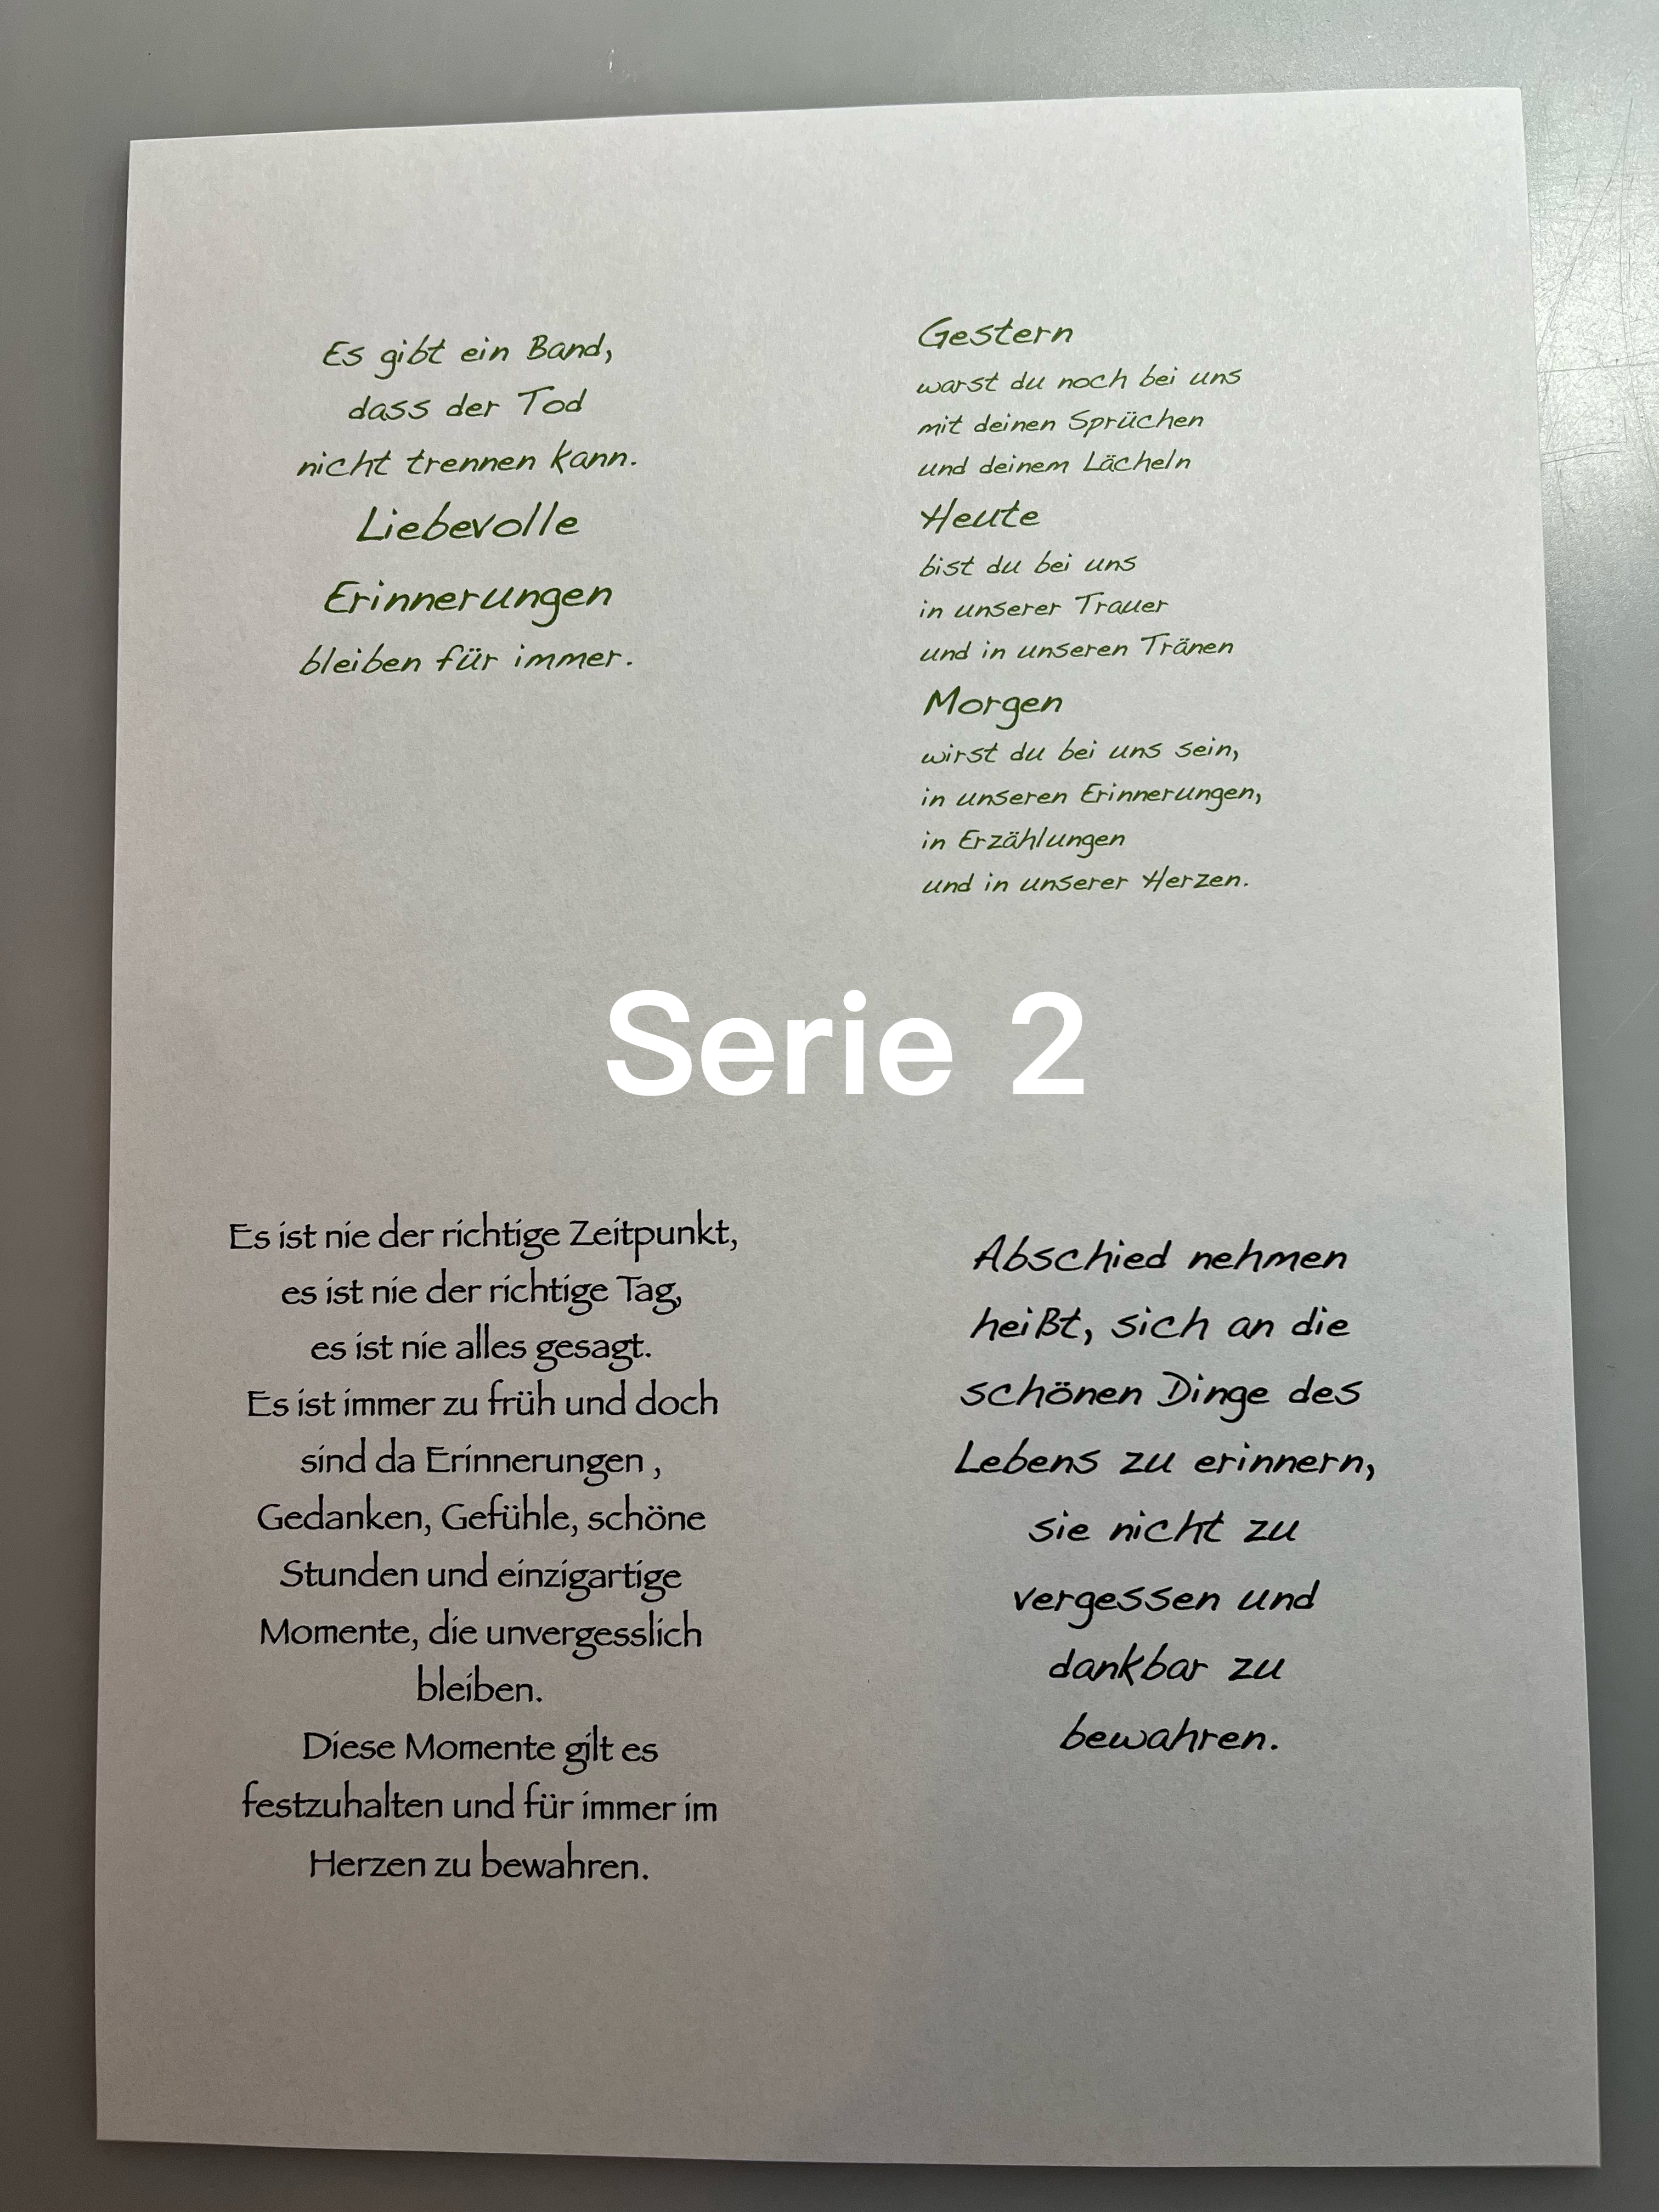 Es gibt ein Band,
dass der Tod
nicht trennen kann.
Liebevolle
Erinnerungen
bleiben für immer.
Gestern
warst du noch bei uns
mit deinen Sprüchen
und deinem Lächeln
Heute
bist du bei uns
in unserer Trauer
und in unseren Tränen
Morgen
wirst du bei uns sein,
in unseren Erinnerungen,
in Erzählungen
und in unserer Herzen.
Serie 2
Es ist nie der richtige Zeitpunkt,
es ist nie der richtige Tag,
es ist nie alles gesagt.
Es ist immer zu früh und doch
sind da Erinnerungen ,
Gedanken, Gefühle, schöne
Stunden und einzigartige
Momente, die unvergesslich
bleiben.
Diese Momente gilt es
festzuhalten und für immer im
Herzen zu bewahren.
Abschied nehmen
heißt, sich an die
schönen Dinge des
Lebens zu erinnern,
sie nicht zu
vergessen und
dankbar zu
bewahren.